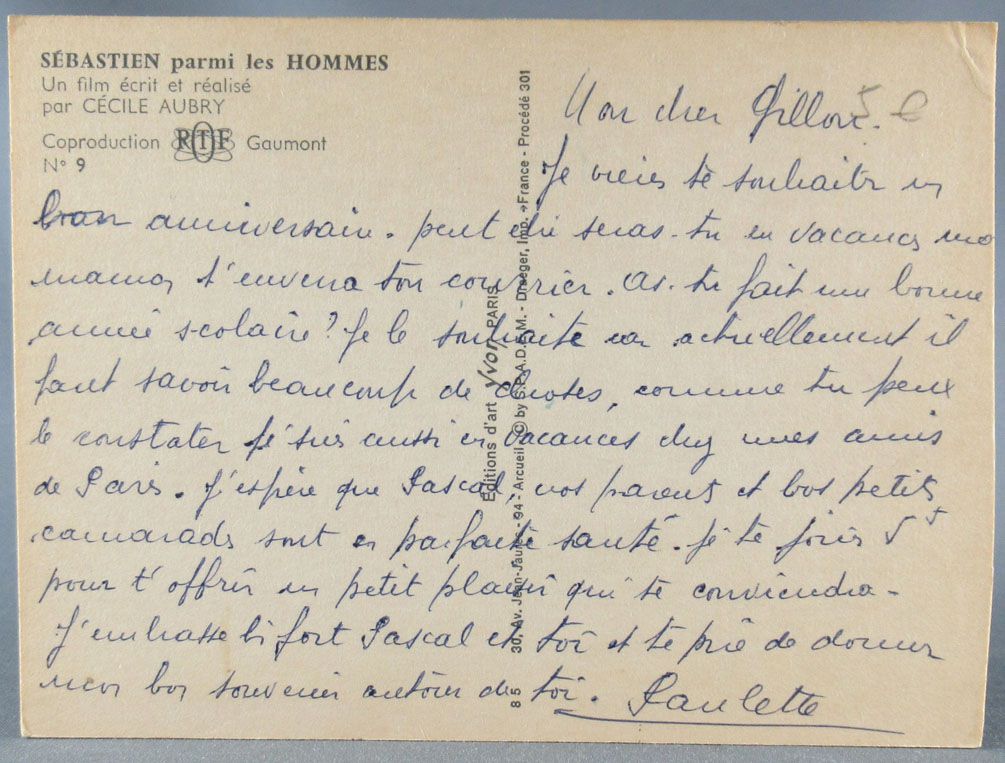 SÉBASTIEN parmi les HOMMES
Un film écrit et réalisé
par CÉCILE AUBRY
Coproduction RTF Gaumont
N° 9
Editions d'art yvon PARIS
8 5 30, Av. Jean-Jaurès - 94 - Arcueil © by S.P.A.D.E.M. - Draeger, Imp. France - Procédé 301
Mon cher
Je viens te souhaiter un
bon anniversaire. peut être seras-tu en vacances
maman t'enverra ton courrier. As-tu fait une bonne
année scolaire? Je le souhaite car actuellement il
faut savoir beaucoup de choses, comme tu peux
le constater je suis aussi en vacances chez mes amis
de Paris. J'espère que Pascal, vos parents et vos petits
camarades sont en parfaite santé. Je te joins 5
pour t'offrir un petit plaisir qui te conviendra.
J'embrasse bi fort Pascal et toi et te prie de donner
mon bon souvenir autour de toi. Paulette